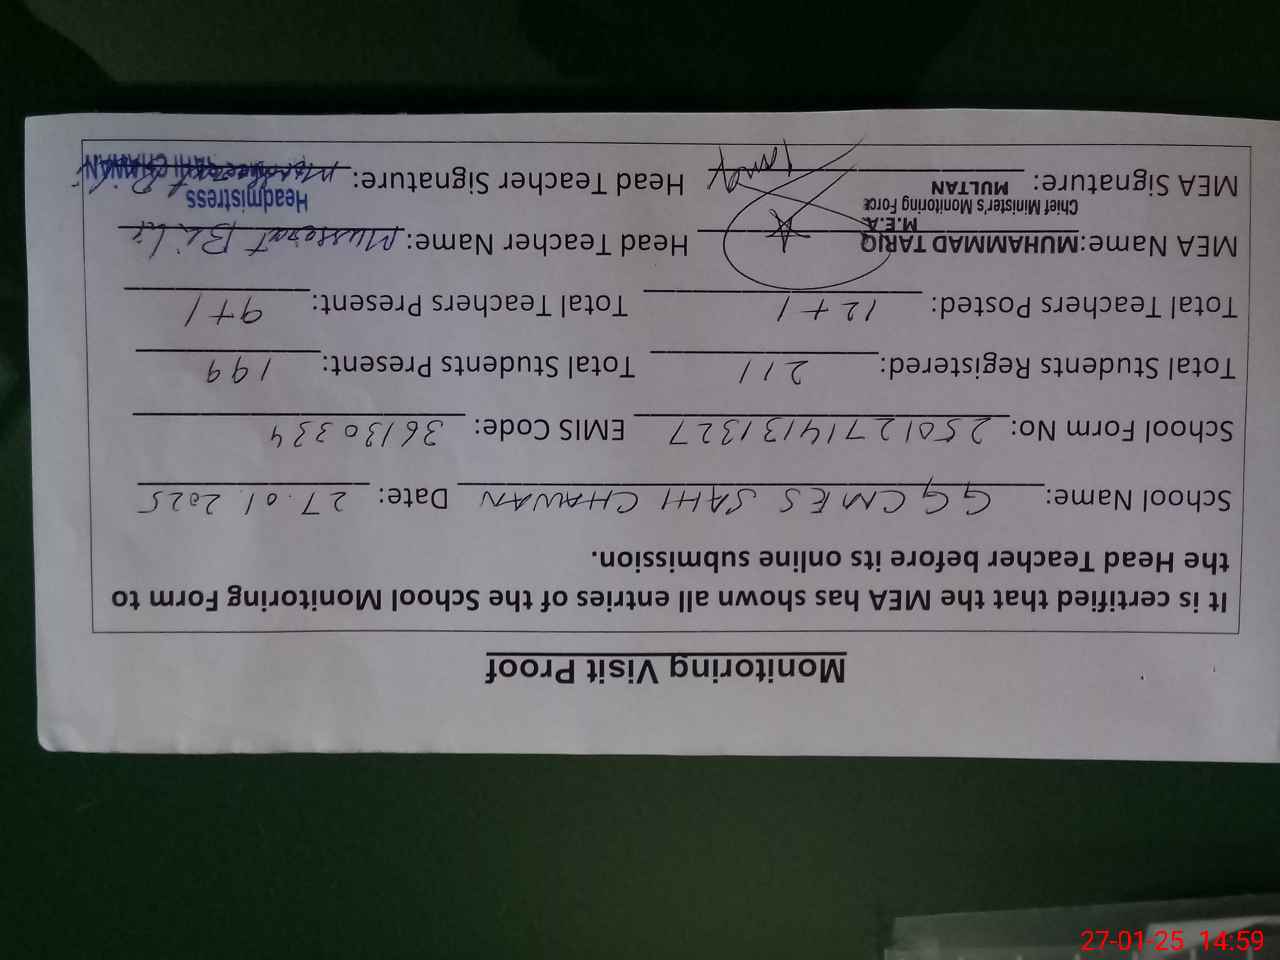 Monitoring Visit Proof
It is certified that the MEA has shown all entries of the School Monitoring Form to
the Head Teacher before its online submission.
School Name: GGCMES SAHI CHAWAN Date: 27.01.2025
School Form No: 25012714131327 EMIS Code: 36130334
Total Students Registered: 211 Total Students Present: 199
Total Teachers Posted: 12+1 Total Teachers Present: 9+1
MEA Name: MUHAMMAD TARIQ Head Teacher Name: Musserat Bibi
M.E.A
Chief Minister's Monitoring Force
MULTAN
Headmistress
MEA Signature: Head Teacher Signature: Musserat Bibi
CHAWAN
27-01-25 14:59